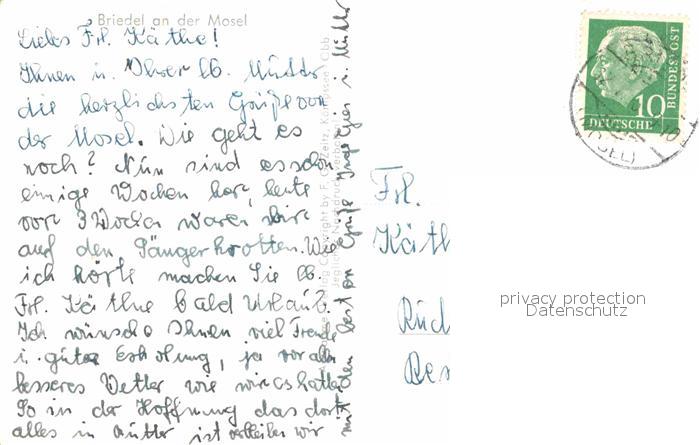 Briedel an der Mosel
Liebes Frl. Käthe!
Ihnen u. Ihrer lb. Mutter
die herzlichsten Grüße von
der Mosel. Wie geht es
noch? Nun sind es schon
einige Wochen her, heute
vor 3 Wochen waren wir
auf den Sängerhrotten. Wie
ich hörte machen Sie lb.
Frl. Käthe bald Urlaub.
Ich wünsche Ihnen viel Freude
u. gute Erholung, ja vor allem
besseres Wetter wie wir es hatten
So in der Hoffnung das dort
alles in Butter ist verbleiben wir
mit den besten Grüße u. Mutter
Frl.
Käth
Rüd
Res
10
DEUTSCHE
BUNDESPOST
(MOSEL)
privacy protection
Datenschutz